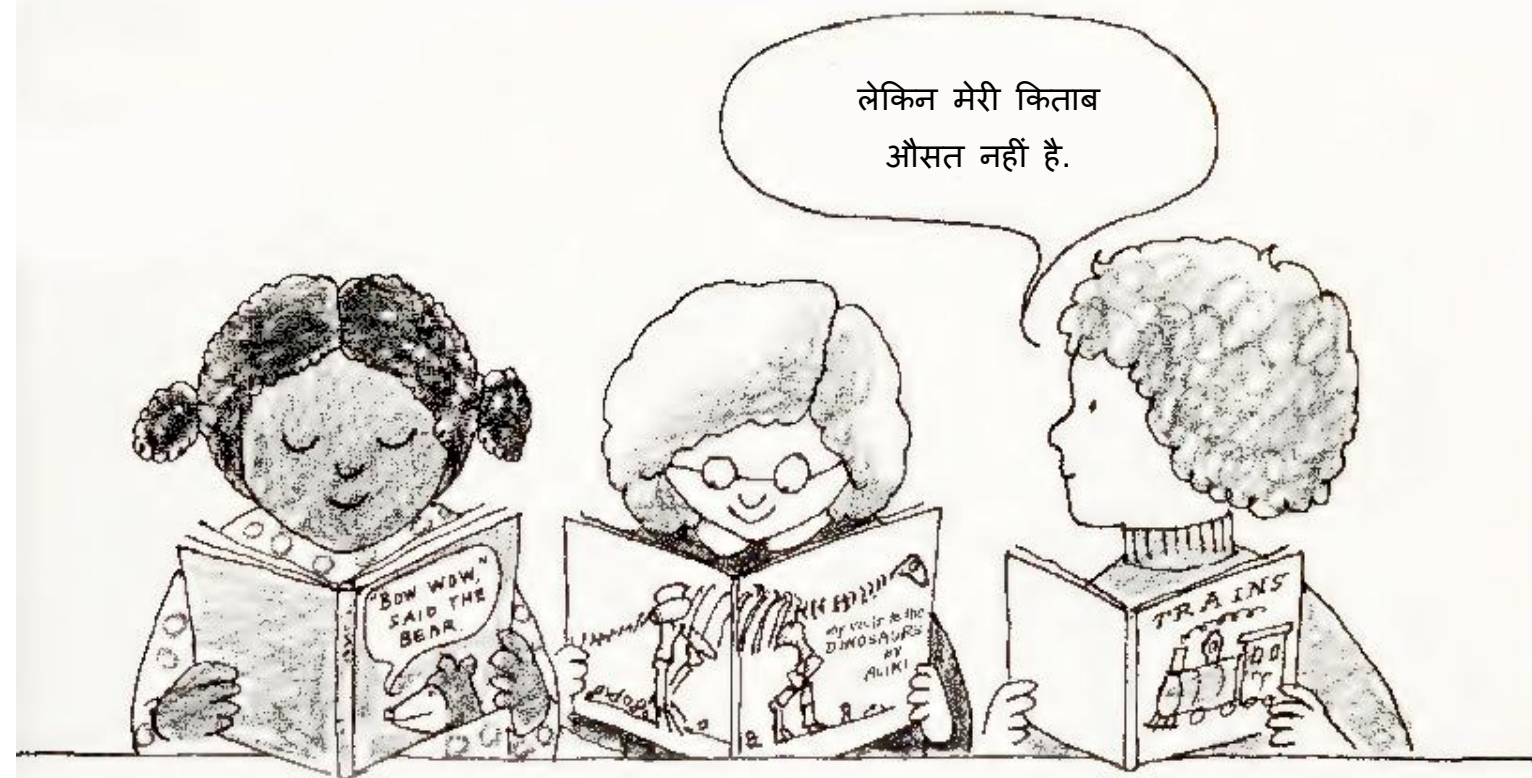 लेकिन मेरी किताब
औसत नहीं है.
"BOW WOW,"
SAID THE
BEAR
my visit to the
DINOSAURS
BY
ALIKI
TRAINS